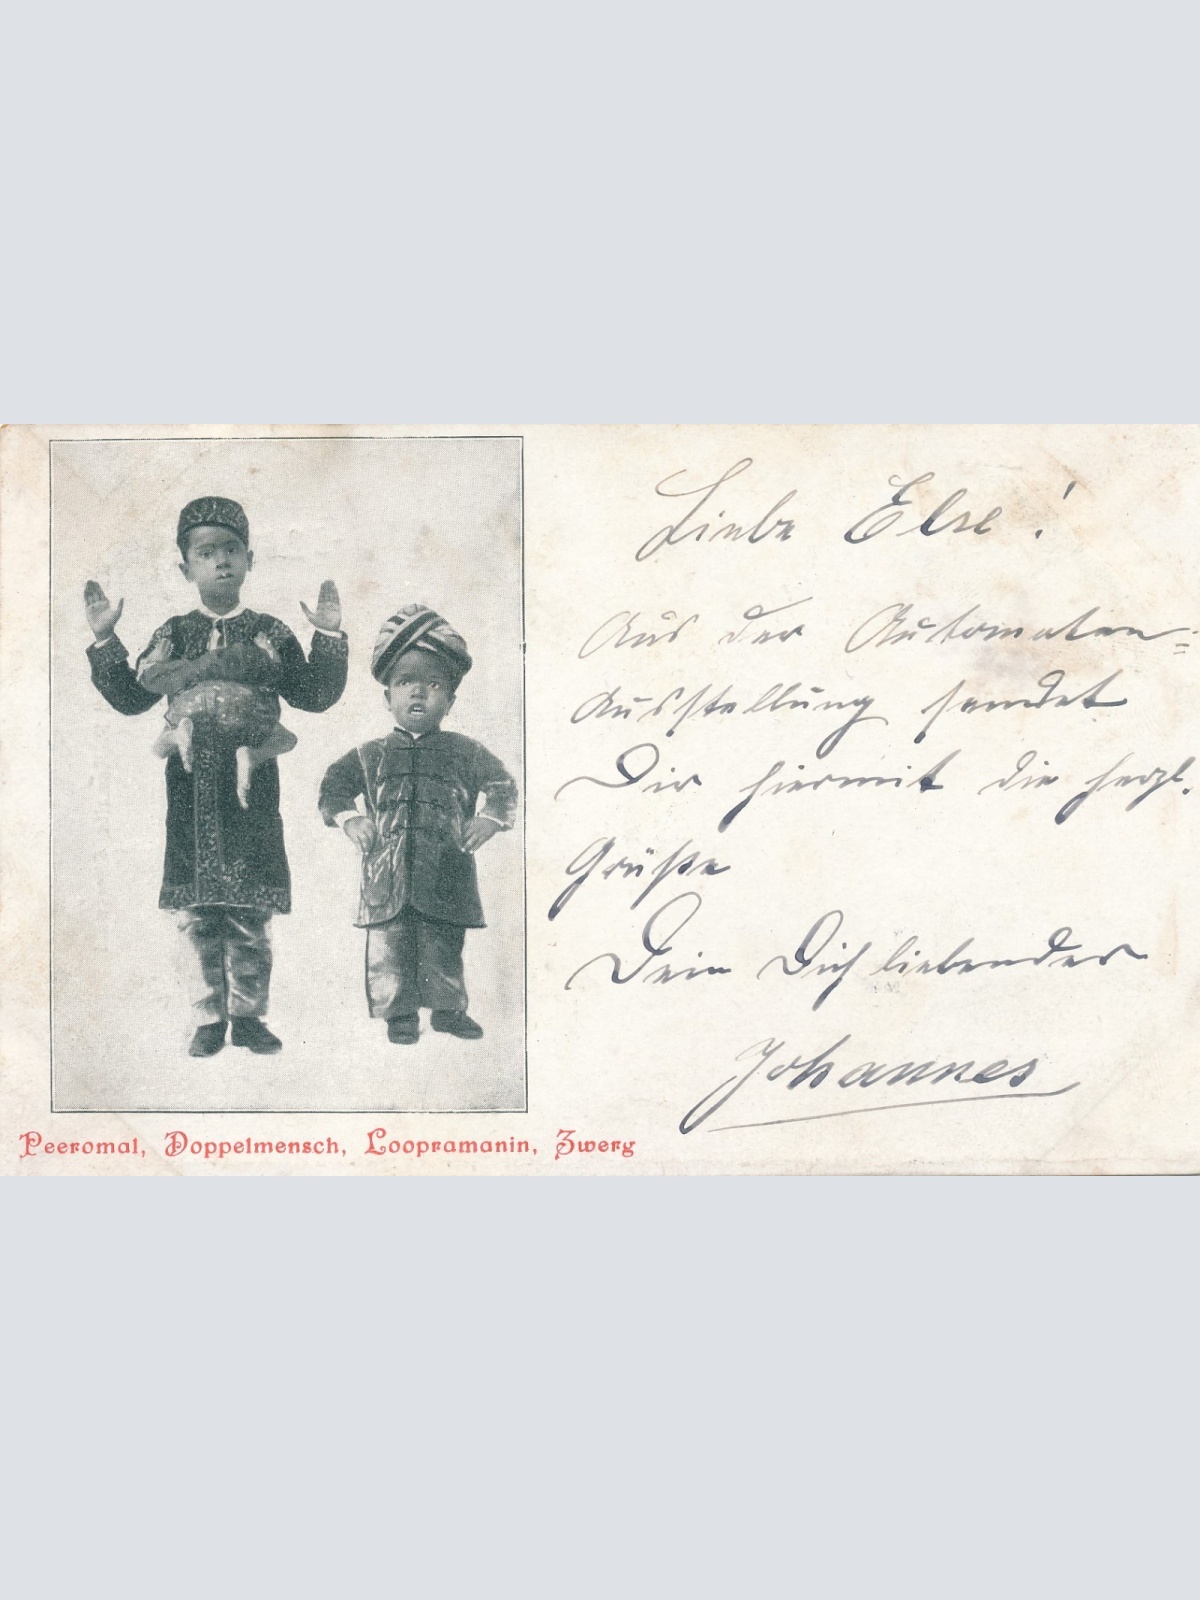 Liebe Else!
Aus der Automaten=
Ausstellung sendet
Dir hiermit die herzl.
Grüße
Dein Dich liebender
Johannes
Peeromal, Doppelmensch, Loopramanin, Zwerg